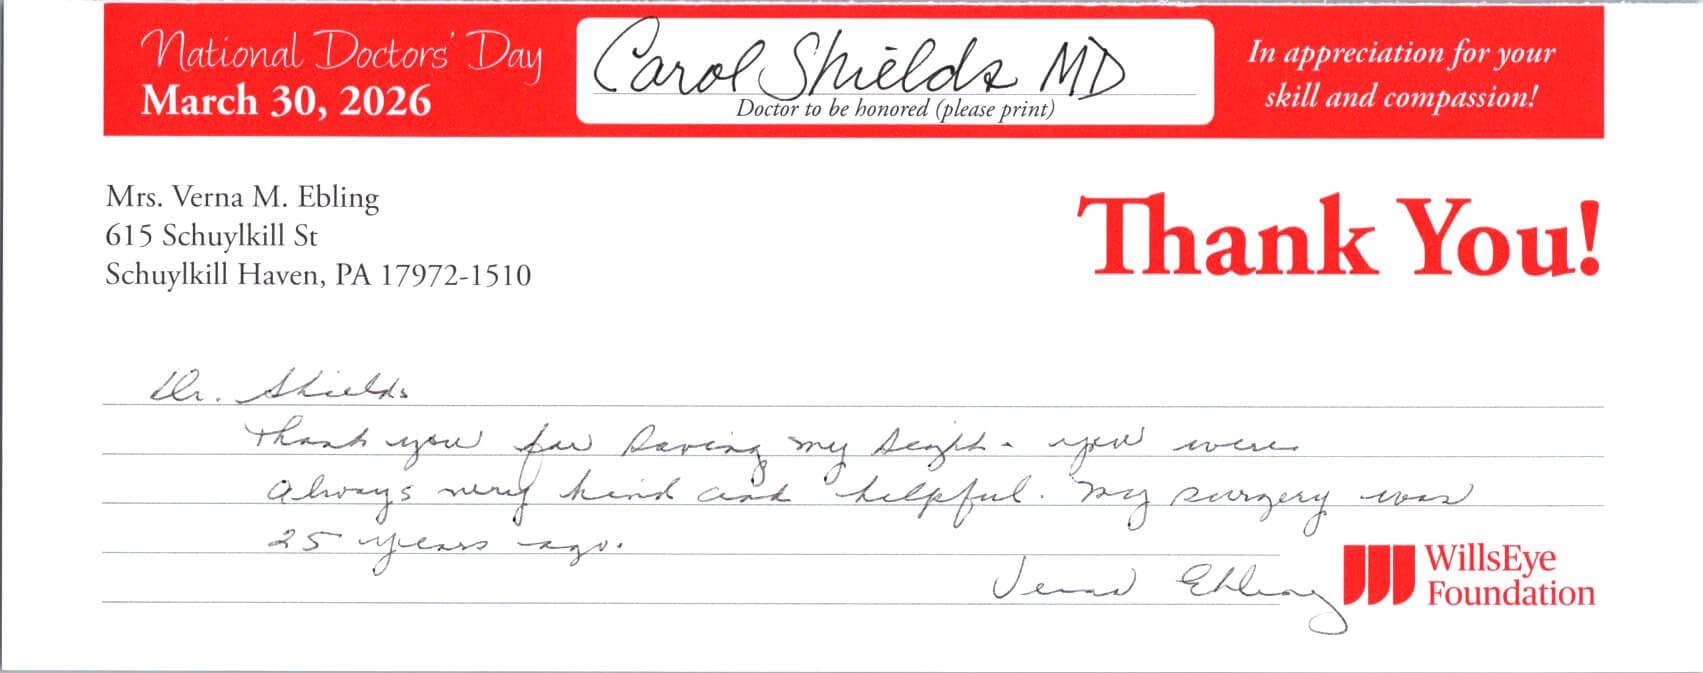 National Doctors' Day
March 30, 2026
Carol Shields MD
Doctor to be honored (please print)
In appreciation for your
skill and compassion!
Mrs. Verna M. Ebling
615 Schuylkill St
Schuylkill Haven, PA 17972-1510
Thank You!
Dr. Shields
Thank you for saving my sight - you were
always very kind and helpful. My surgery was
25 years ago.
Verna Ebling
WillsEye
Foundation